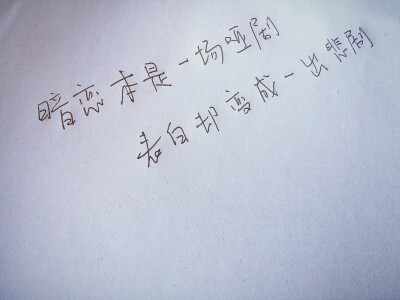 暗恋本是一场哑剧
表白却变成一出悲剧